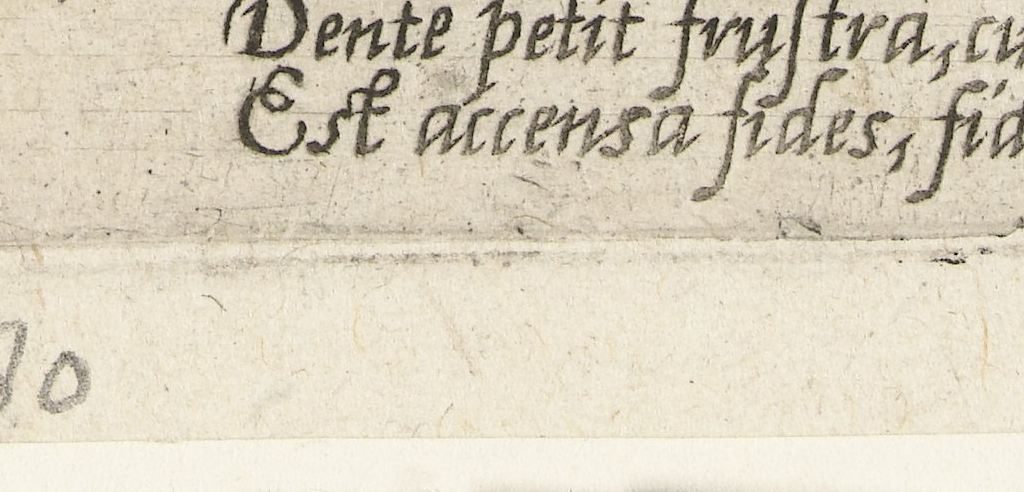 Dente petit frustra, cu
Est accensa fides, fid